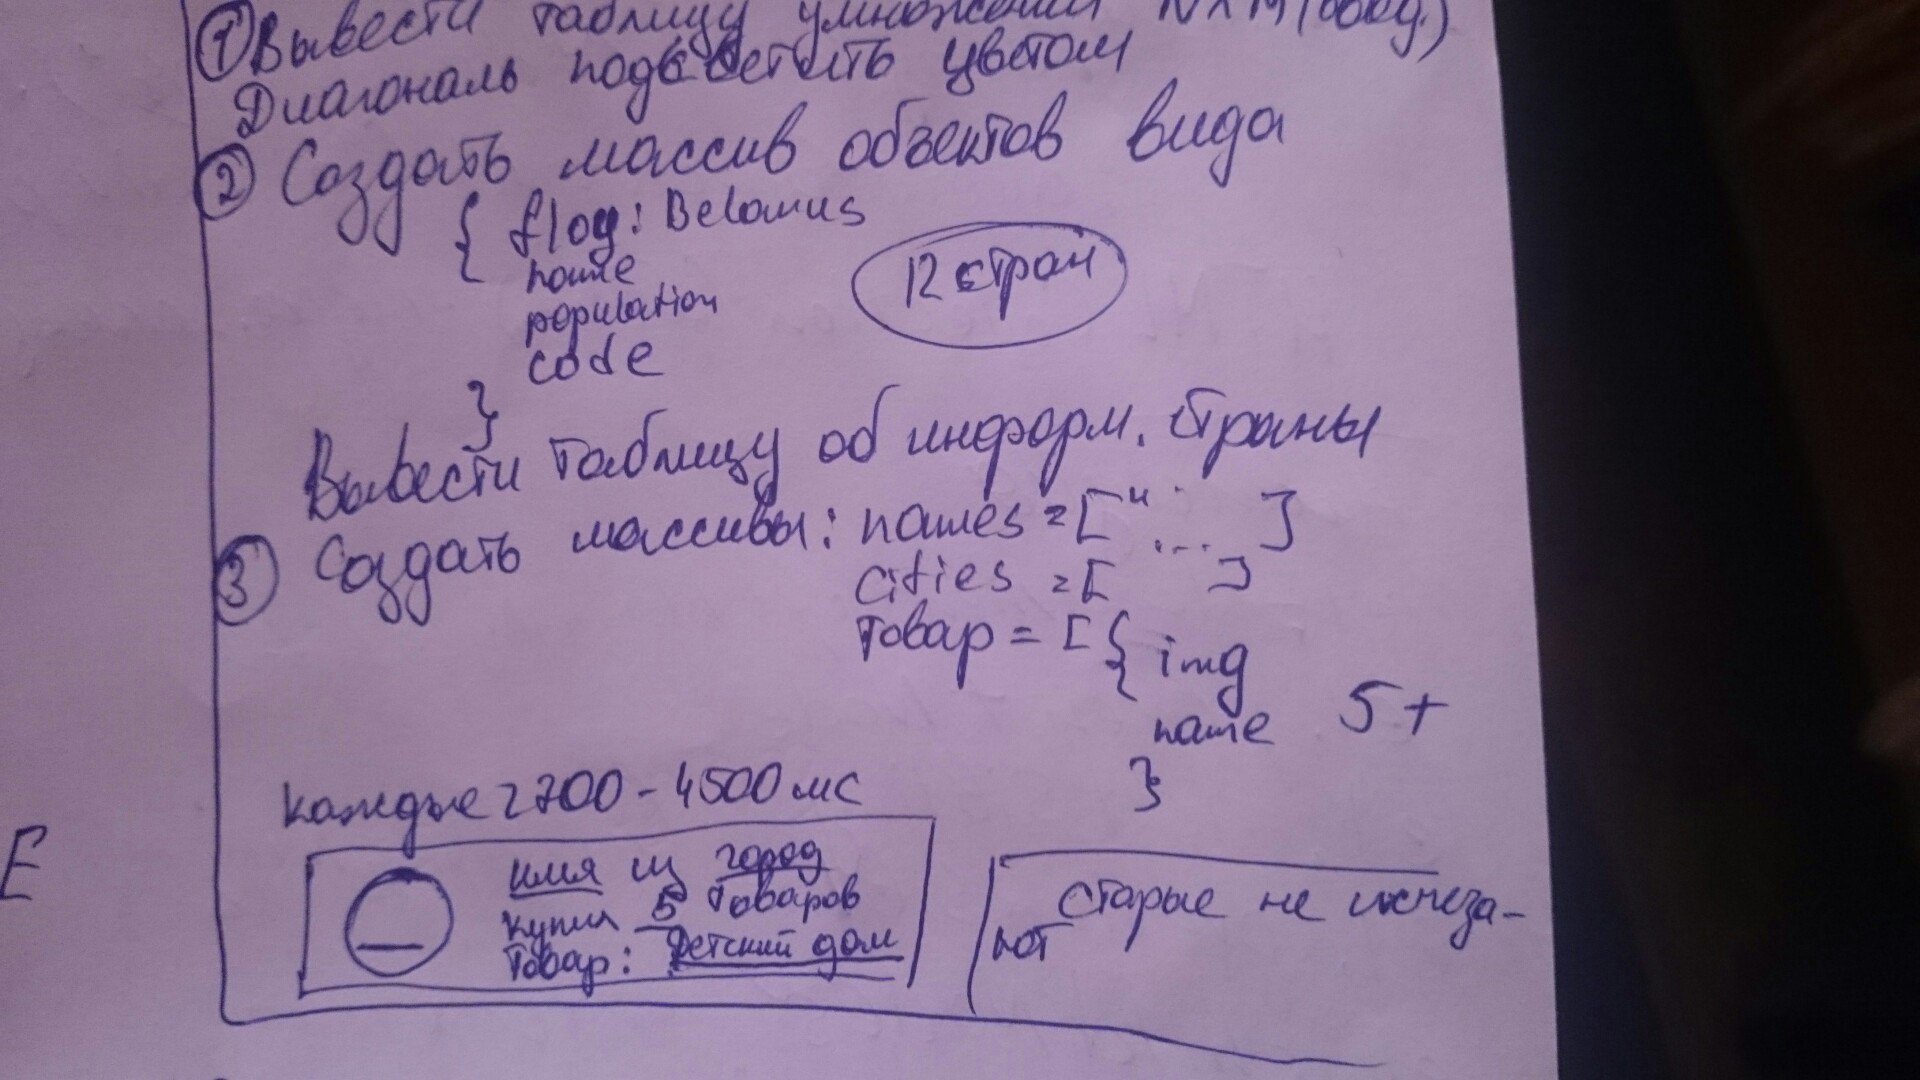 ① Вывести таблицу умножения NxM (
Диагональ подсветить цветом
② Создать массив объектов вида
{ flag: Belarus
name
population
code
}
12 стран
Вывести таблицу об информ. страны
③ Создать массивы: names = [" ... ]
cities = [ ]
товар = [ { img
name 5+
}
каждые 2700 - 4500 мс
имя из город
купил 5 товаров
товар: Детский дом
старые не исчеза-
ют
E